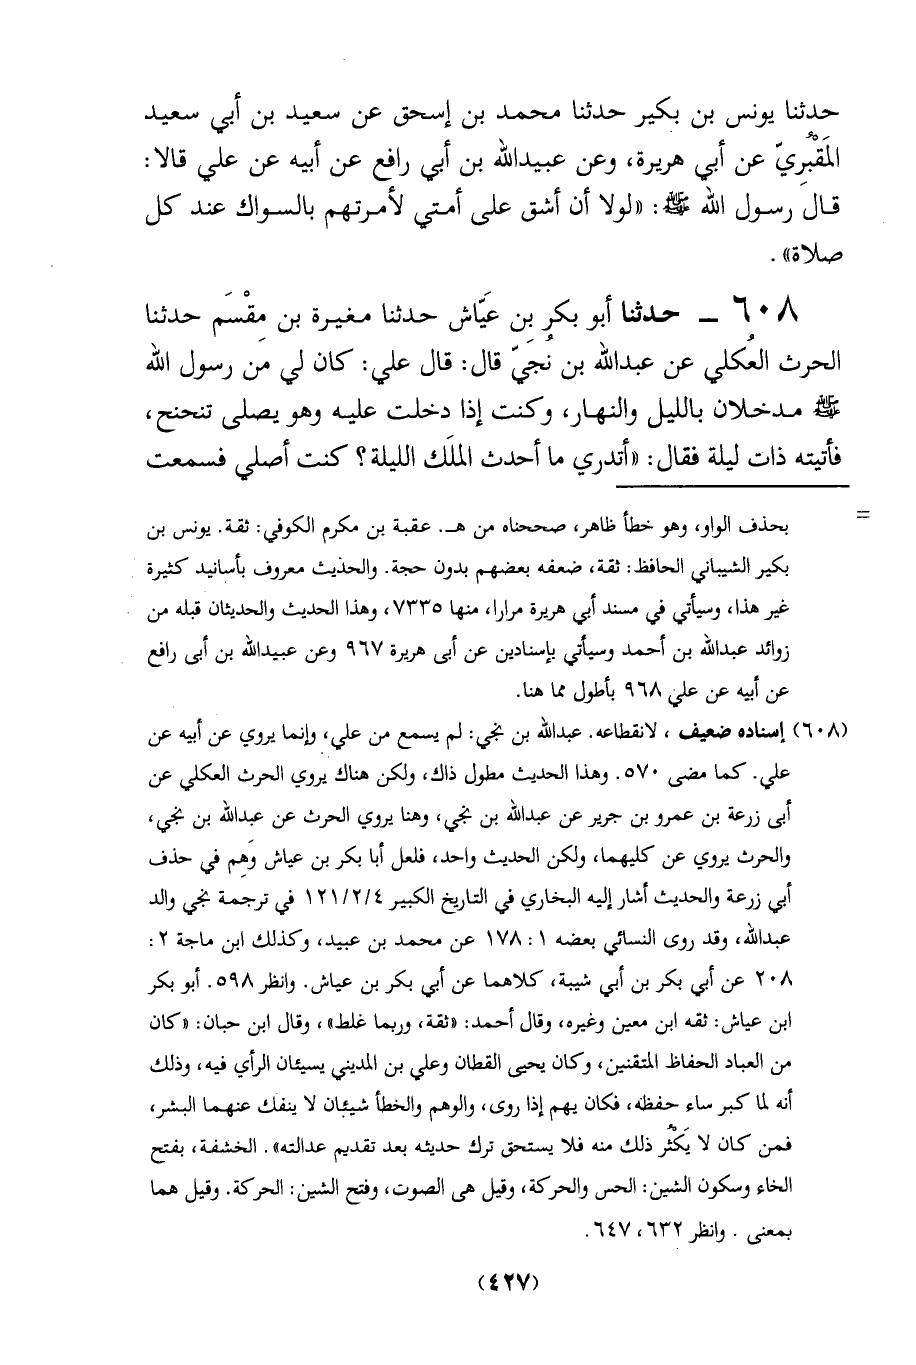 حدثنا يونس بن بكير حدثنا محمد بن إسحق عن سعيد بن أبي سعيد
المَقْبُريّ عن أبي هريرة، وعن عبيدالله بن أبي رافع عن أبيه عن علي قالا:
قال رسول الله ﷺ: «لولا أن أشق على أمتي لأمرتهم بالسواك عند كل
صلاة».
٦٠٨ ــ حدثنا أبو بكر بن عيَّاش حدثنا مغيرة بن مِقْسَم حدثنا
الحرث العُكلي عن عبدالله بن نُجَيّ قال: قال علي: كان لي من رسول الله
ﷺ مدخلان بالليل والنهار، وكنت إذا دخلت عليه وهو يصلى تنحنح،
فأتيته ذات ليلة فقال: «أتدري ما أحدث الملَك الليلة؟ كنت أصلي فسمعت
= بحذف الواو، وهو خطأ ظاهر، صححناه من هـ. عقبة بن مكرم الكوفي: ثقة. يونس بن
بكير الشيباني الحافظ: ثقة، ضعفه بعضهم بدون حجة. والحذيث معروف بأسانيد كثيرة
غير هذا، وسيأتي في مسند أبي هريرة مرارا، منها ٧٣٣٥، وهذا الحديث والحديثان قبله من
زوائد عبدالله بن أحمد وسيأتي بإسنادين عن أبى هريرة ٩٦٧ وعن عبيدالله بن أبى رافع
عن أبيه عن علي ٩٦٨ بأطول مما هنا.
(٦٠٨) إسناده ضعيف، لانقطاعه. عبدالله بن نجي: لم يسمع من علي، وإنما يروي عن أبيه عن
علي. كما مضى ٥٧٠. وهذا الحديث مطول ذاك، ولكن هناك يروي الحرث العكلي عن
أبى زرعة بن عمرو بن جرير عن عبدالله بن نجي، وهنا يروي الحرث عن عبدالله بن نجي،
والحرث يروي عن كليهما، ولكن الحديث واحد، فلعل أبا بكر بن عياش وَهِم في حذف
أبي زرعة والحديث أشار إليه البخاري في التاريخ الكبير ١٢١/٢/٤ في ترجمة نجي والد
عبدالله، وقد روى النسائي بعضه ١: ١٧٨ عن محمد بن عبيد، وكذلك ابن ماجة ٢:
٢٠٨ عن أبي بكر بن أبي شيبة، كلاهما عن أبي بكر بن عياش. وانظر ٥٩٨. أبو بكر
ابن عياش: ثقه ابن معين وغيره، وقال أحمد: «ثقة، وربما غلط»، وقال ابن حبان: «كان
من العباد الحفاظ المتقنين، وكان يحيى القطان وعلي بن المديني يسيئان الرأي فيه، وذلك
أنه لما كبر ساء حفظه، فكان يهم إذا روى، والوهم والخطأ شيئان لا ينفك عنهما البشر،
فمن كان لا يَكْثُر ذلك منه فلا يستحق ترك حديثه بعد تقديم عدالته». الخشفة، بفتح
الخاء وسكون الشين: الحس والحركة، وقيل هى الصوت، وفتح الشين: الحركة. وقيل هما
بمعنى. وانظر ٦٣٢، ٦٤٧.
(٤٢٧)